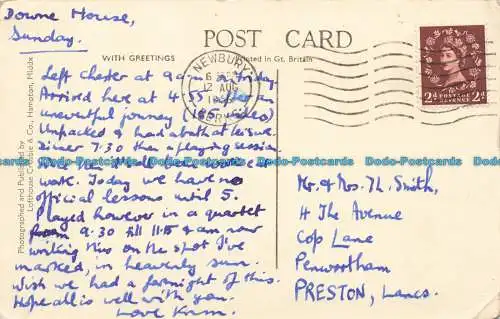 Downe House,
Sunday.
POST CARD
WITH GREETINGS
Printed in Gt. Britain
NEWBURY
12 AUG
BERKS
2d POSTAGE REVENUE 2d
Left Chester at 9 am Friday
Arrived here at 4.55 after an
uneventful journey (185 miles)
Unpacked & had a bath at leisure.
Dinner 7.30 then a playing session
till 9 pm. Well hard at
work. Today we have no
official lessons until 5.
Played however in a quartet
from 9.30 till 11.15 & am now
writing this on the spot I've
marked, in heavenly sun.
Wish we had a fortnight of this.
Hope all is well with you.
Love
Mr. & Mrs. H. Smith,
4 The Avenue
Cop Lane
Penwortham
PRESTON, Lancs.
Photographed and Published by
Lofthouse Crosbie & Co., Hampton, Middx
Dodo-Postcards Dodo-Postcards Dodo-Postcards Dodo-Postcards Dodo-Postcards Dodo-Postcards